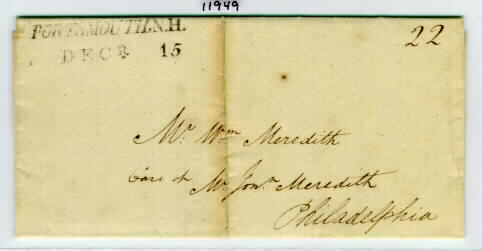 11949
PORTSMOUTH.N.H.
DEC 8 15
22
Mr. Wm Meredith
Care of Mr Jonn. Meredith
Philadelphia